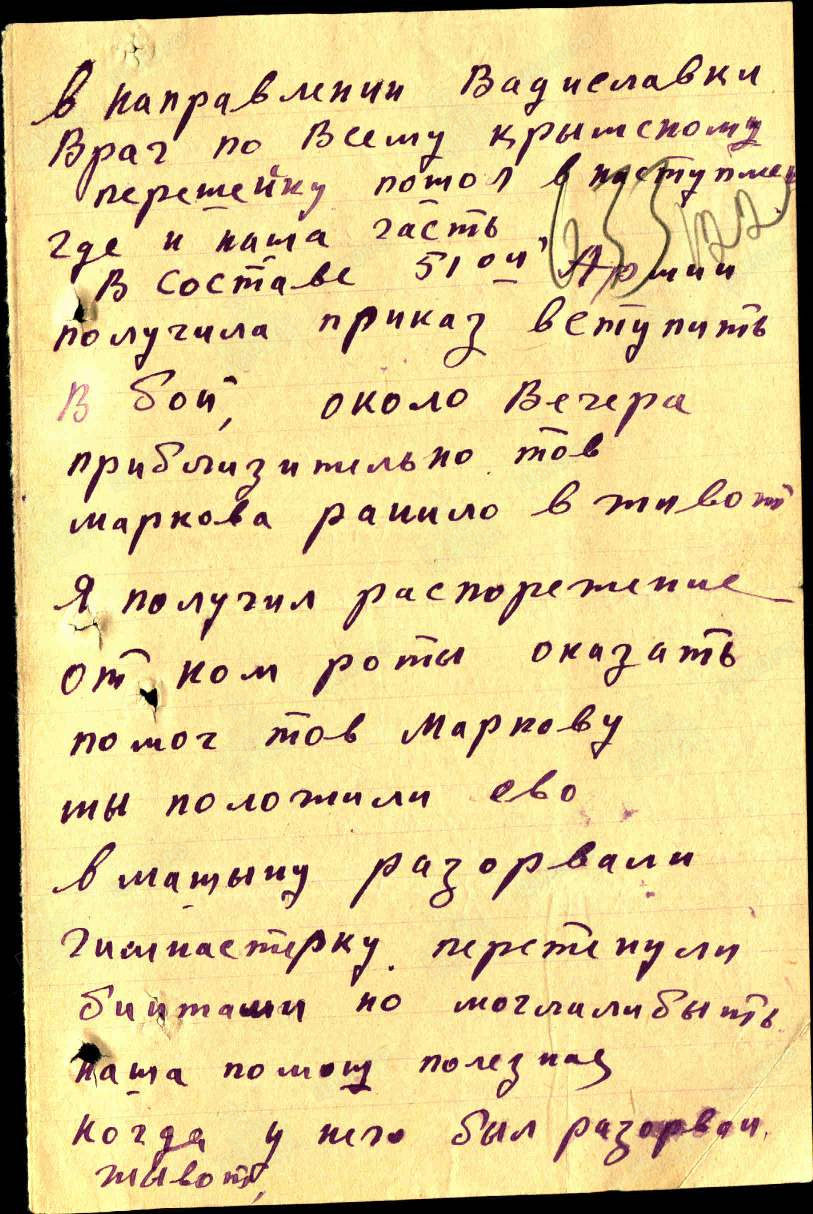 в направлении Вадиславки
Враг по Всему крымскому
перешейку пошол в наступлен
где и наша часть
В составе 51ой Армии
получила приказ вступить
В бой, около Вечера
приблизительно тов
маркова ранило в живот
Я получил распорежение
от ком роты оказать
помоч тов Маркову
мы положили ево
в машыну разорвали
гимнастерку перетенули
бинтами но моглилибыть
наша помощ полезная
когда у него был разорван
жывот,